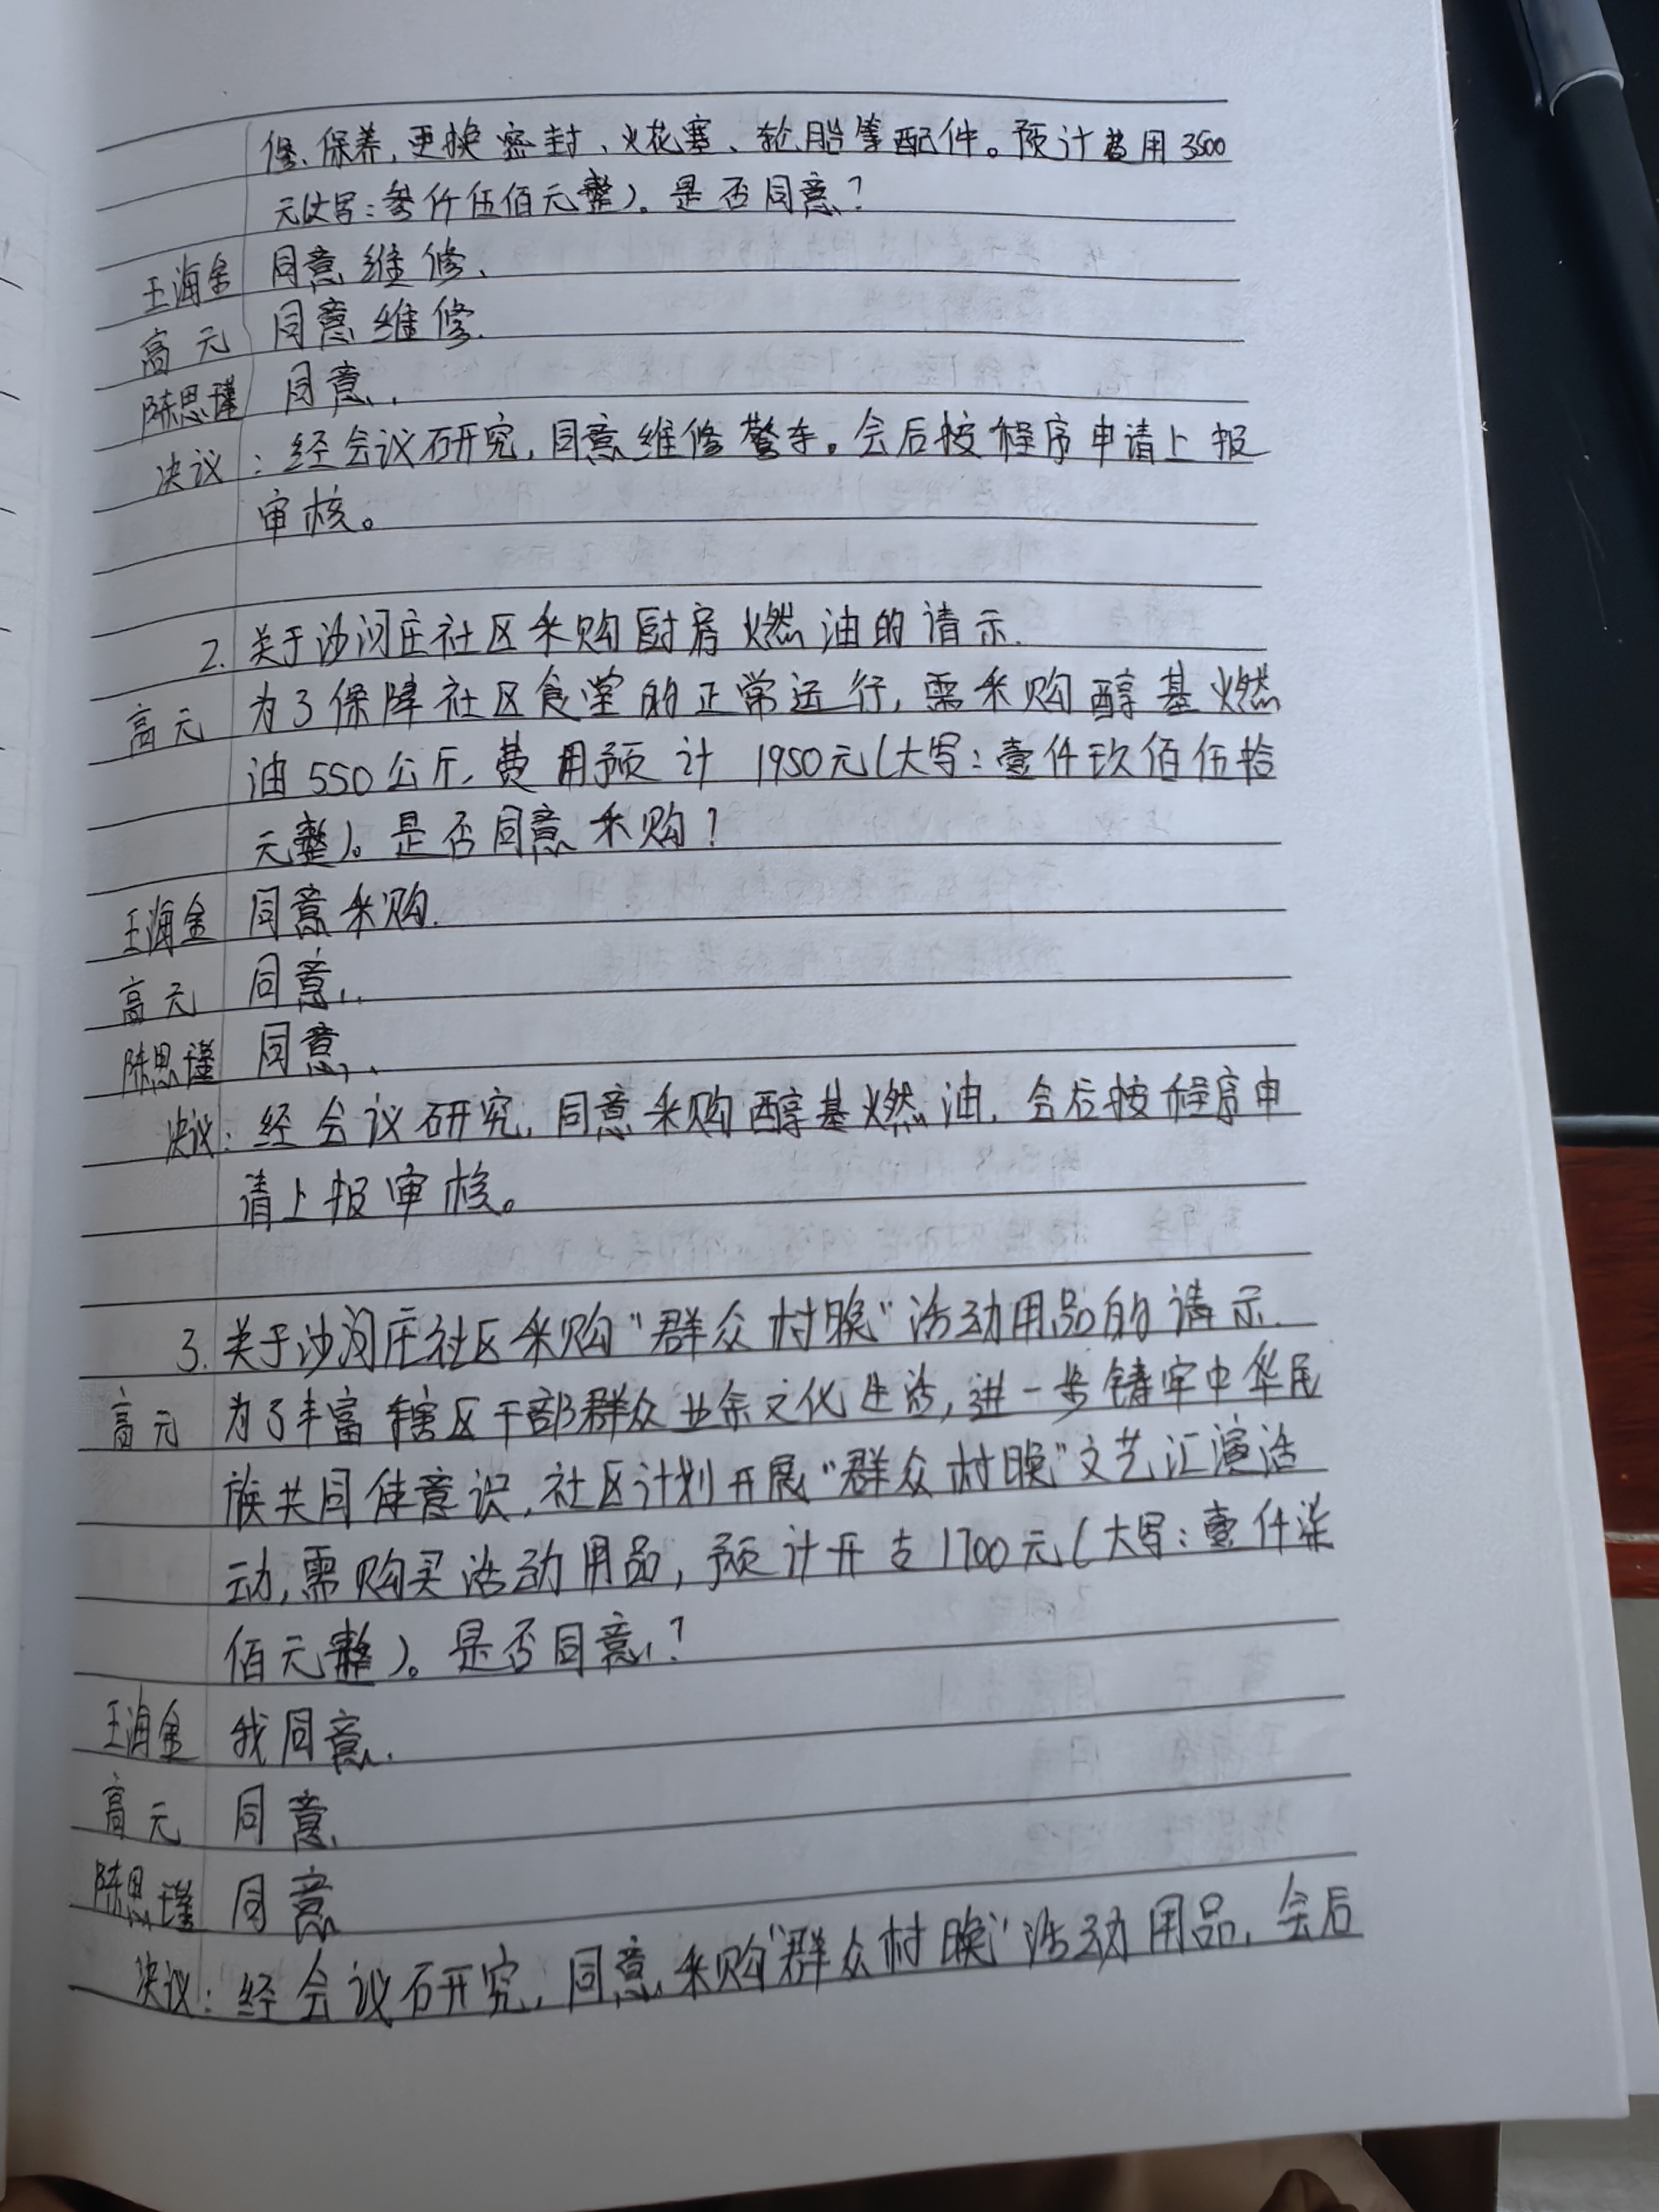 修、保养,更换密封、火花塞、轮胎等配件。预计费用3500
元(大写:叁仟伍佰元整)。是否同意?
王海金 同意维修、
高元 同意维修.
陈思瑾 同意.
决议:经会议研究,同意维修警车。会后按程序申请上报
审核。
2.关于沙河庄社区采购厨房燃油的请示.
高元 为了保障社区食堂的正常运行,需采购醇基燃
油550公斤,费用预计1950元(大写:壹仟玖佰伍拾
元整)。是否同意采购?
王海金 同意采购.
高元 同意.
陈思瑾 同意.
决议:经会议研究,同意采购醇基燃油,会后按程序申
请上报审核。
3.关于沙河庄社区采购“群众村晚”活动用品的请示.
高元 为了丰富辖区干部群众业余文化生活,进一步铸牢中华民
族共同体意识,社区计划开展“群众村晚”文艺汇演活
动,需购买活动用品,预计开支1700元(大写:壹仟柒
佰元整)。是否同意?
王海金 我同意.
高元 同意.
陈思瑾 同意
决议:经会议研究,同意采购“群众村晚”活动用品,会后